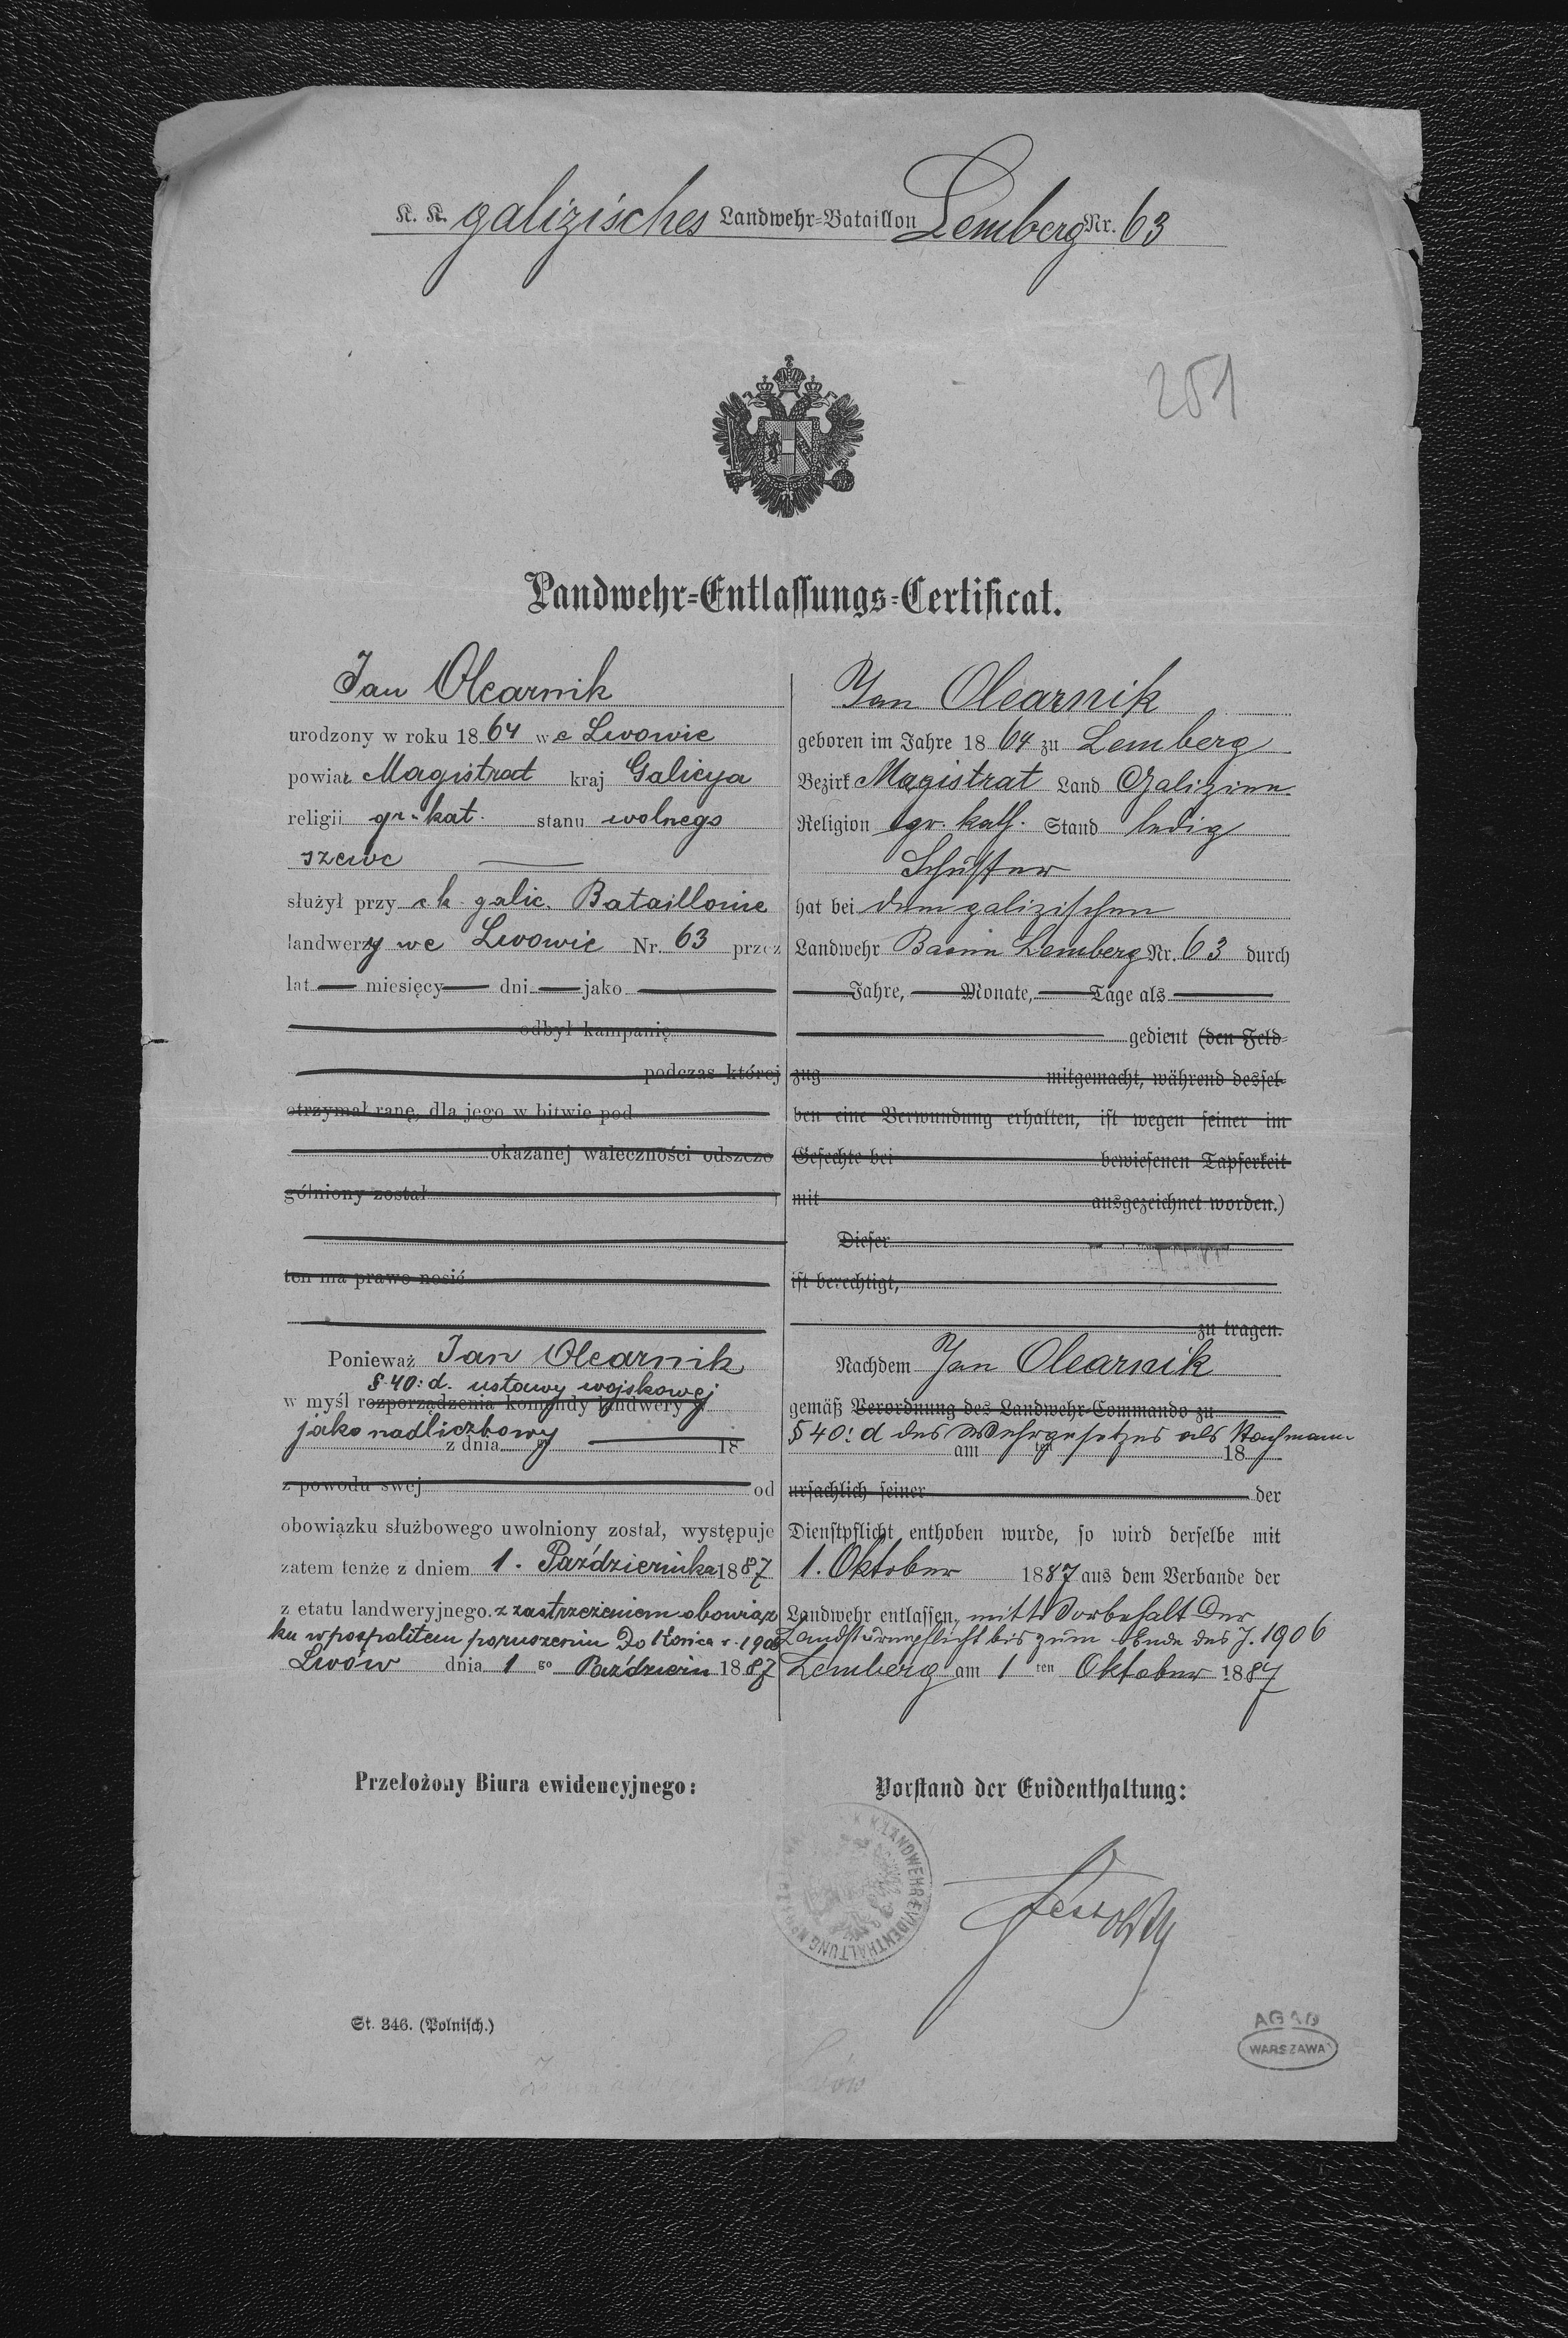 K. K. galizisches Landwehr-Bataillon Lemberg Nr. 63
251
Landwehr-Entlassungs-Certificat.
Jan Olearnik
urodzony w roku 1864 we Lwowie
powiat Magistrat kraj Galicya
religii gr. kat. stanu wolnego
szewc
służył przy ck galic. Bataillonie
landwery we Lwowie Nr. 63 przez
lat — miesięcy — dni — jako —
odbył kampanię
podczas której
otrzymał ranę, dla jego w bitwie pod
okazanej waleczności odszcze
gólniony został
ten ma prawo nosić
Ponieważ Jan Olearnik
§ 40: d. ustawy wojskowej
w myśl rozporządzenia komendy landwery
jako nadliczbowy
z dnia 18
z powodu swej od
obowiązku służbowego uwolniony został, występuje
zatem tenże z dniem 1. Października 1887
z etatu landweryjnego. z zastrzeżeniem obowiąz
ku w pospolitem poruszeniu Do Końca r. 1906
Lwów dnia 1 go Paździem 1887
Przełożony Biura ewidencyjnego:
Jan Olearnik
geboren im Jahre 1864 zu Lemberg
Bezirk Magistrat Land Galizien
Religion gr. kath. Stand ledig
Schuster
hat bei dem galizischen
Landwehr Baon Lemberg Nr. 63 durch
— Jahre, — Monate, — Tage als —
gedient (den Feld-
zug mitgemacht, während dessel-
ben eine Verwundung erhalten, ist wegen seiner im
Gefechte bei bewiesenen Tapferkeit
mit ausgezeichnet worden.)
Dieser
ist berechtigt,
zu tragen.
Nachdem Jan Olearnik
gemäß Verordnung des Landwehr-Commando zu
§ 40: d des Wehrgesetzes als
am ten 18
ursachlich seiner der
Dienstpflicht enthoben wurde, so wird derselbe mit
1. Oktober 1887 aus dem Verbande der
Landwehr entlassen, mit Vorbehalt der
Landsturmpflicht bis zum Ende des J. 1906
Lemberg am 1 ten Oktober 1887
Vorstand der Evidenthaltung:
K. K. LANDWEHR EVIDENTHALTUNG
St. 346. (Polnisch.)
AGAD
WARSZAWA
Lwów